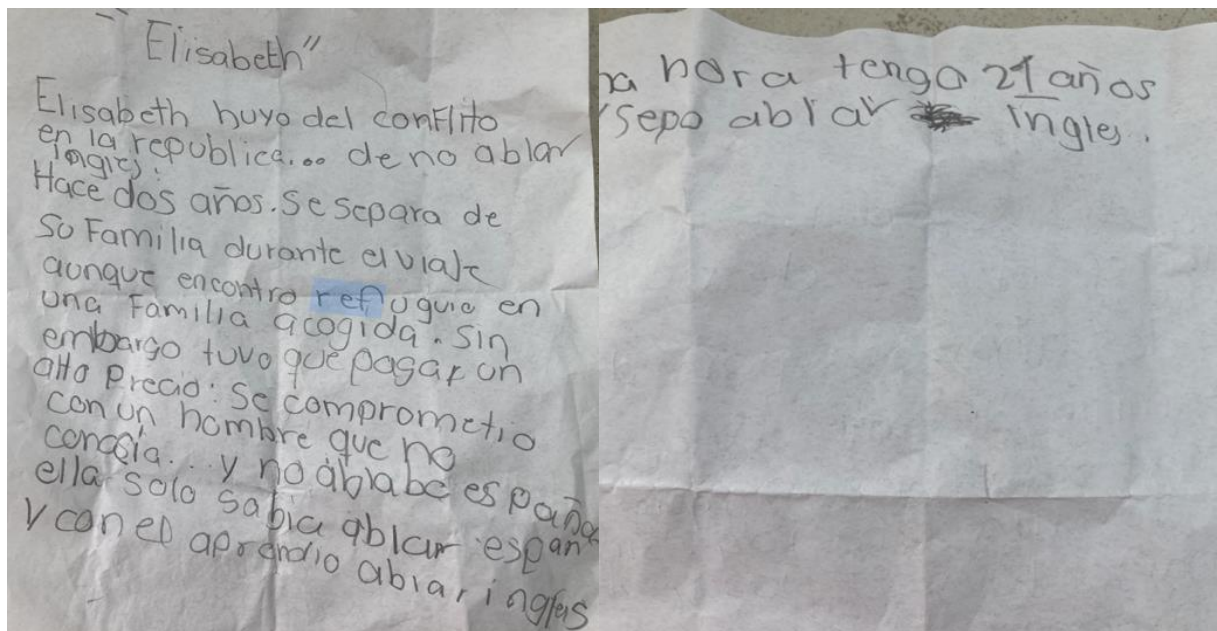 Elisabeth"
Elisabeth huyo del conflito
en la republica... de no ablar
ingles.
Hace dos años. Se separa de
su Familia durante el viaje
aunque encontro refuguio en
una Familia acogida. Sin
embargo tuvo que pagar un
alto Precio: Se comprometio
con un hombre que no
conosia... y no ablabe español
ella solo sabia ablar españ
y con el aprendio ablar ingles
ha hora tengo 21 años
y sepo ablar ingles.